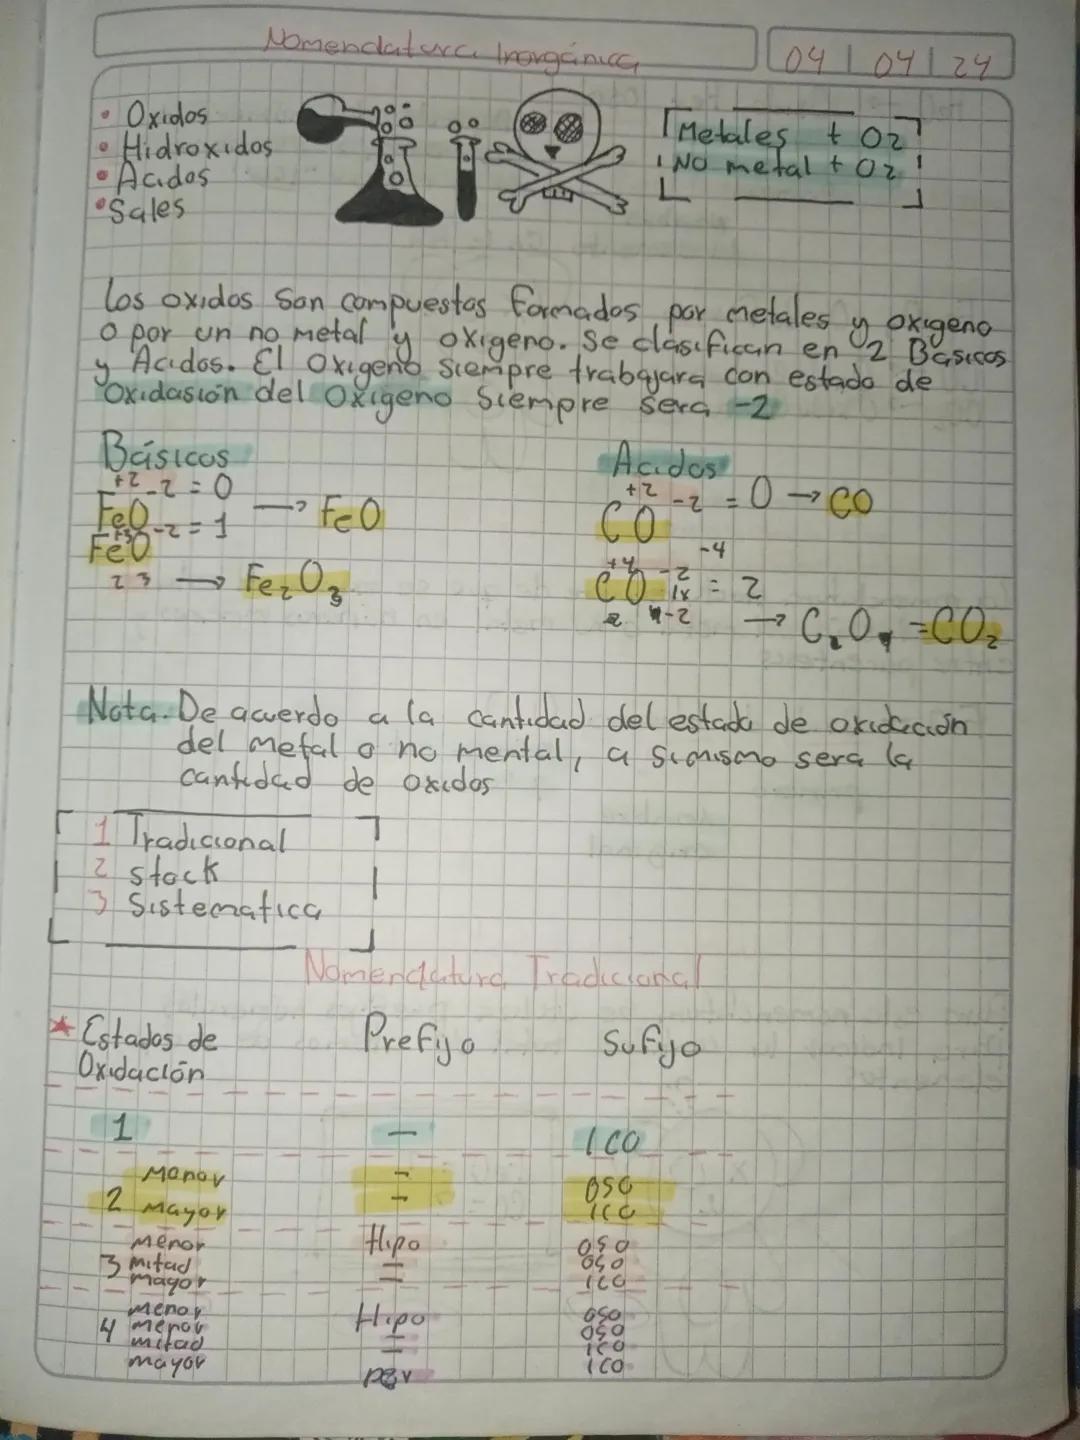 Nomenclatura Inorgánica
04 | 04 | 24
• Oxidos
• Hidroxidos
• Acidos
• Sales
Metales + O2
NO metal + O2
Los oxidos son compuestos formados por metales y oxigeno
o por un no metal y oxigeno. Se clasifican en 2 Basicos
y Acidos. El Oxigeno siempre trabajara con estado de
Oxidasión del Oxigeno Siempre sera -2
Básicos
+2 -2 = 0
FeO → FeO
+3 -2 = 1
FeO
2 3 → Fe₂O₃
Acidos
+2 -2 = 0 → CO
CO
-4
+4 -2
CO 1x = 2
4-2
→ C₂O₄ = CO₂
Nota. De acuerdo a la cantidad del estado de oxidación
del metal o no mental, a simismo sera la
cantidad de oxidos
1 Tradicional
2 stock
3 Sistematica
Nomenclatura Tradicional
* Estados de Prefijo Sufijo
Oxidación
1 — ICO
Menor - oso
2 Mayor - ico
menor Hipo oso
3 mitad — oso
mayor — ico
menor Hipo oso
4 menor — oso
mitad — ico
mayor per ico